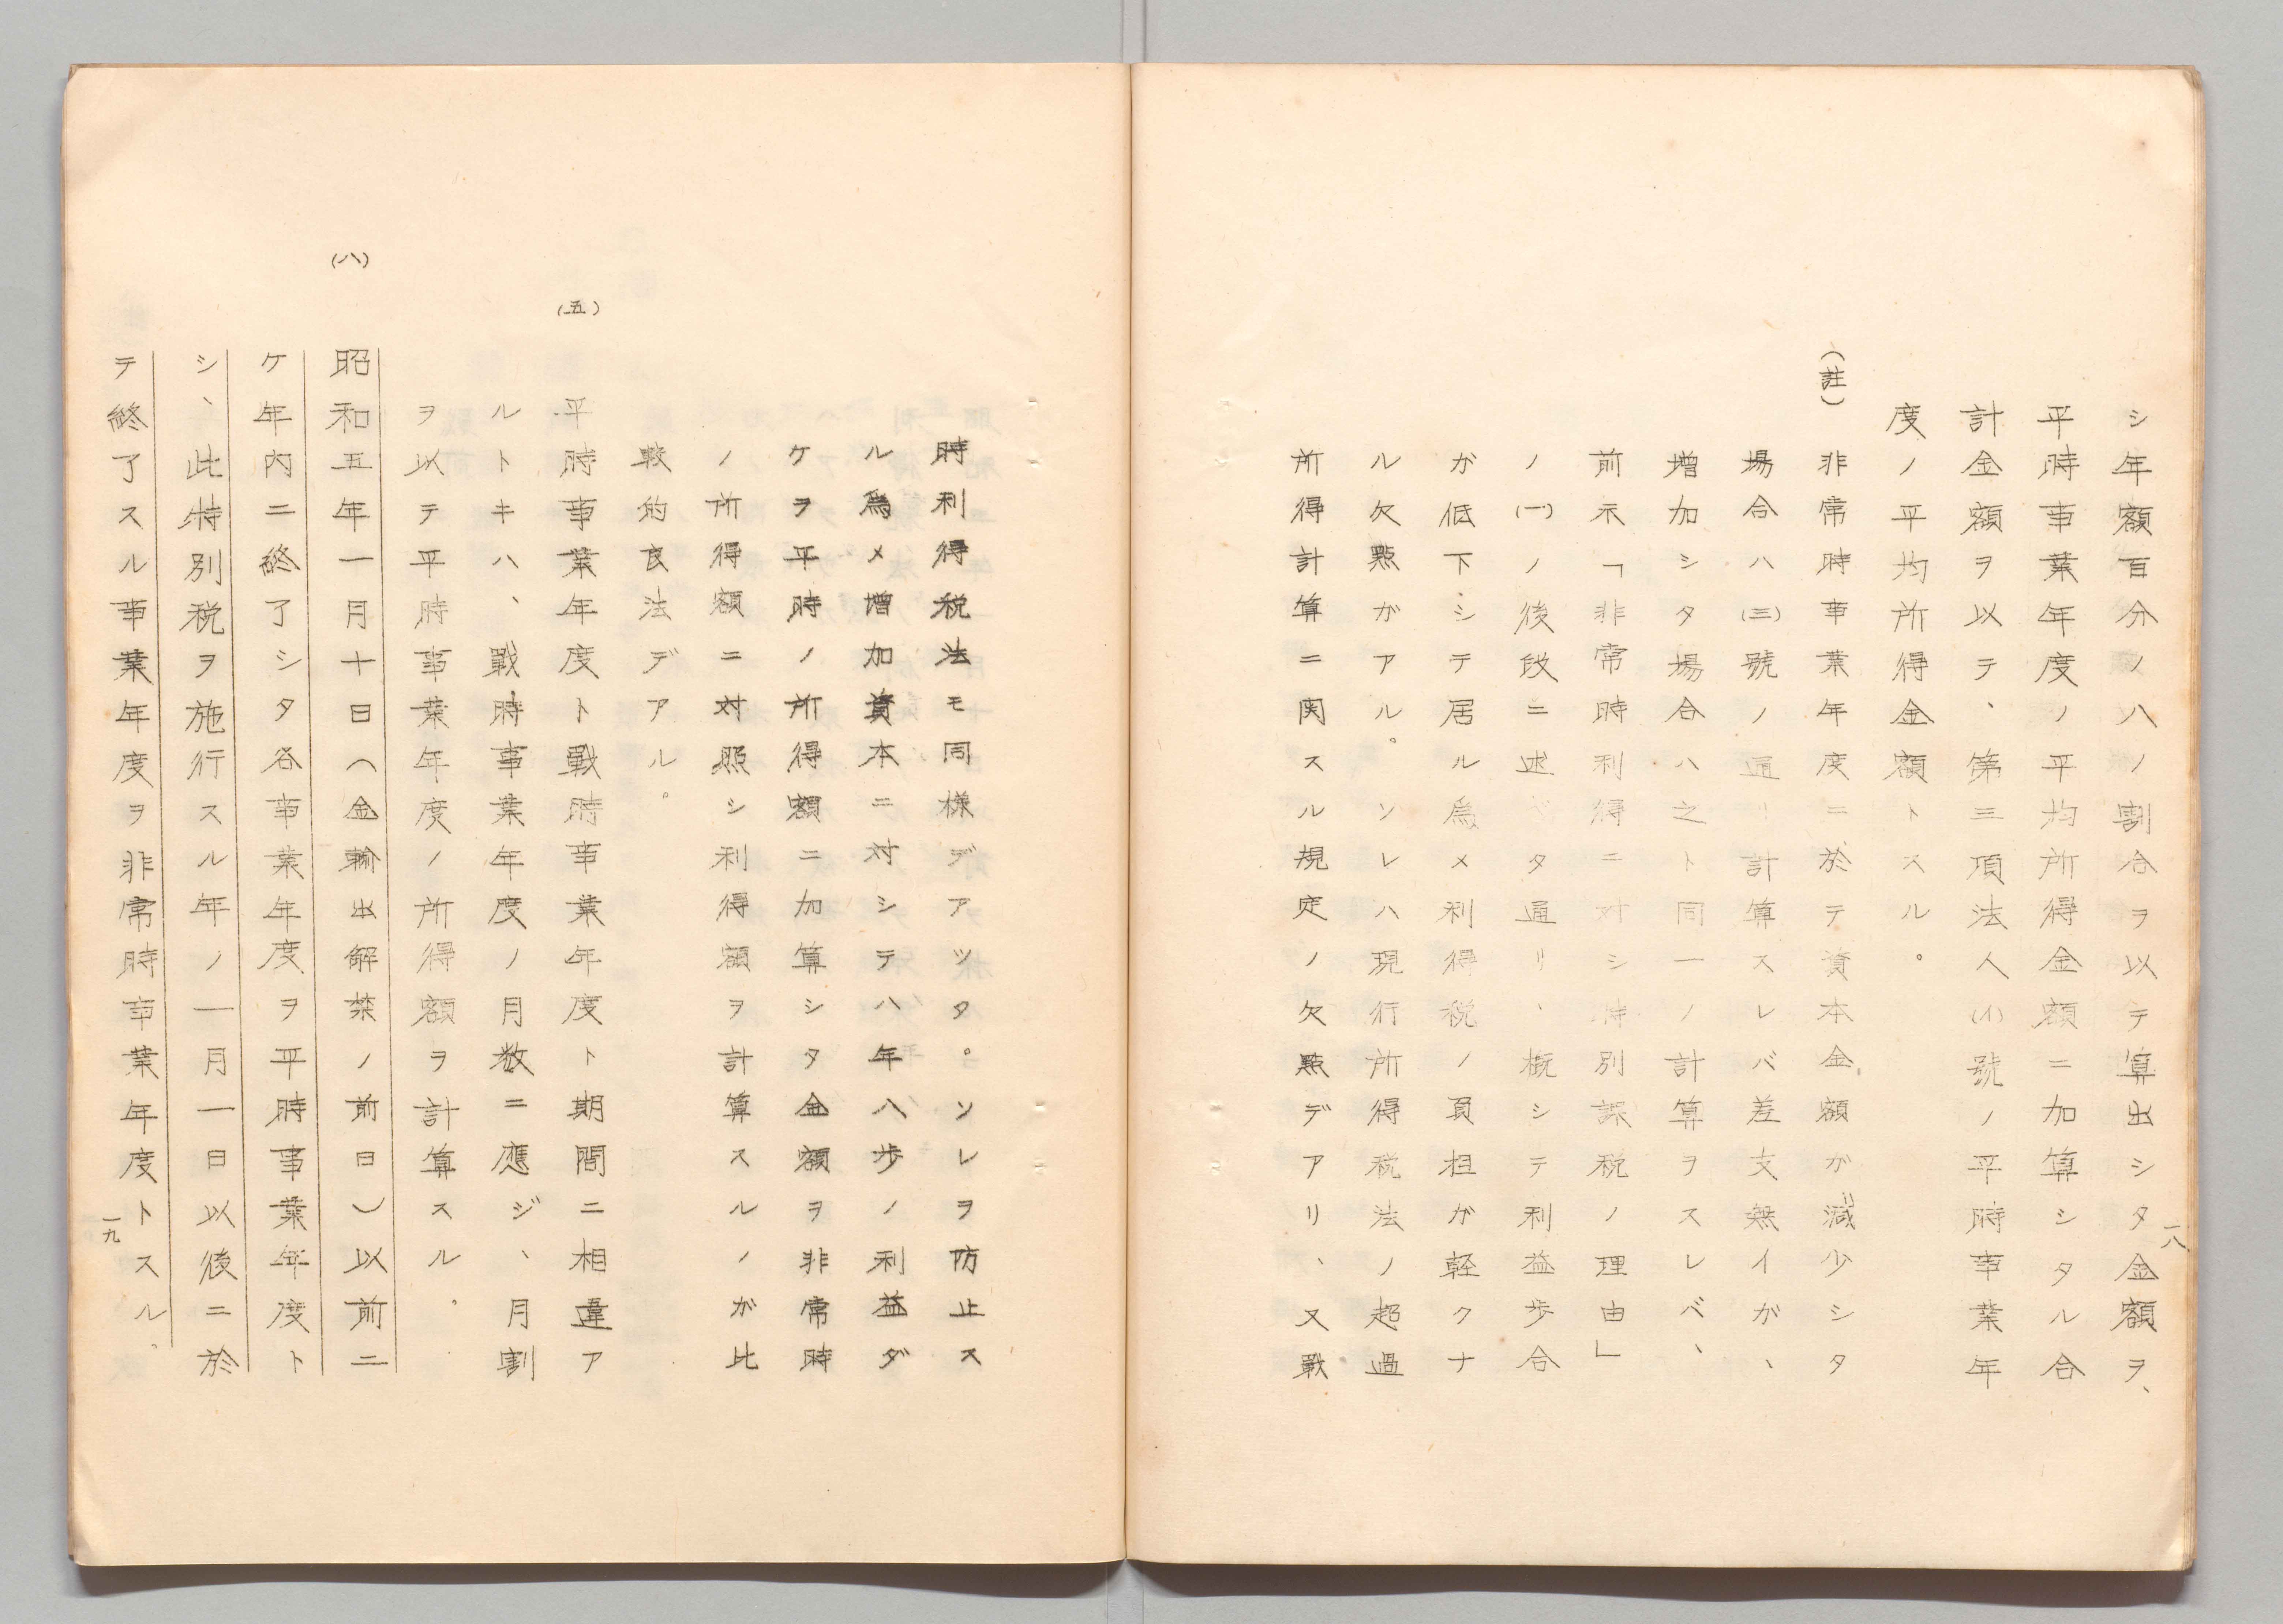 シ年額百分ノ八ノ割合ヲ以テ算出シタ金額ヲ、
平時事業年度ノ平均所得金額ニ加算シタル合
計金額ヲ以テ、第三項法人(イ)號ノ平時事業年
度ノ平均所得金額トスル。
(註)
非常時事業年度ニ於テ資本金額が減少シタ
場合ハ(三)號ノ通リ計算スレバ差支無イが、
増加シタ場合ハ之ト同一ノ計算ヲスレバ、
前示「非常時利得ニ対シ特別課税ノ理由」
ノ(一)ノ後段ニ述ベタ通リ、概シテ利益歩合
が低下シテ居ル為メ利得税ノ負担が軽クナ
ル欠點がアル。ソレハ現行所得税法ノ超過
所得計算ニ関スル規定ノ欠點デアリ、又戰
一八
時利得税法モ同様デアツタ。ソレヲ防止ス
ル爲メ増加資本ニ対シテハ年八歩ノ利益ダ
ケヲ平時ノ所得額ニ加算シタ金額ヲ非常時
ノ所得額ニ対照シ利得額ヲ計算スルノが比
較的良法デアル。
(五)
平時事業年度ト戰時事業年度ト期間ニ相違ア
ルトキハ、戰時事業年度ノ月数ニ應ジ、月割
ヲ以テ平時事業年度ノ所得額ヲ計算スル。
(八)
昭和五年一月十日(金輸出解禁ノ前日)以前ニ
ケ年内ニ終了シタ各事業年度ヲ平時事業年度ト
シ、此特別税ヲ施行スル年ノ一月一日以後ニ於
テ終了スル事業年度ヲ非常時事業年度トスル。
一九